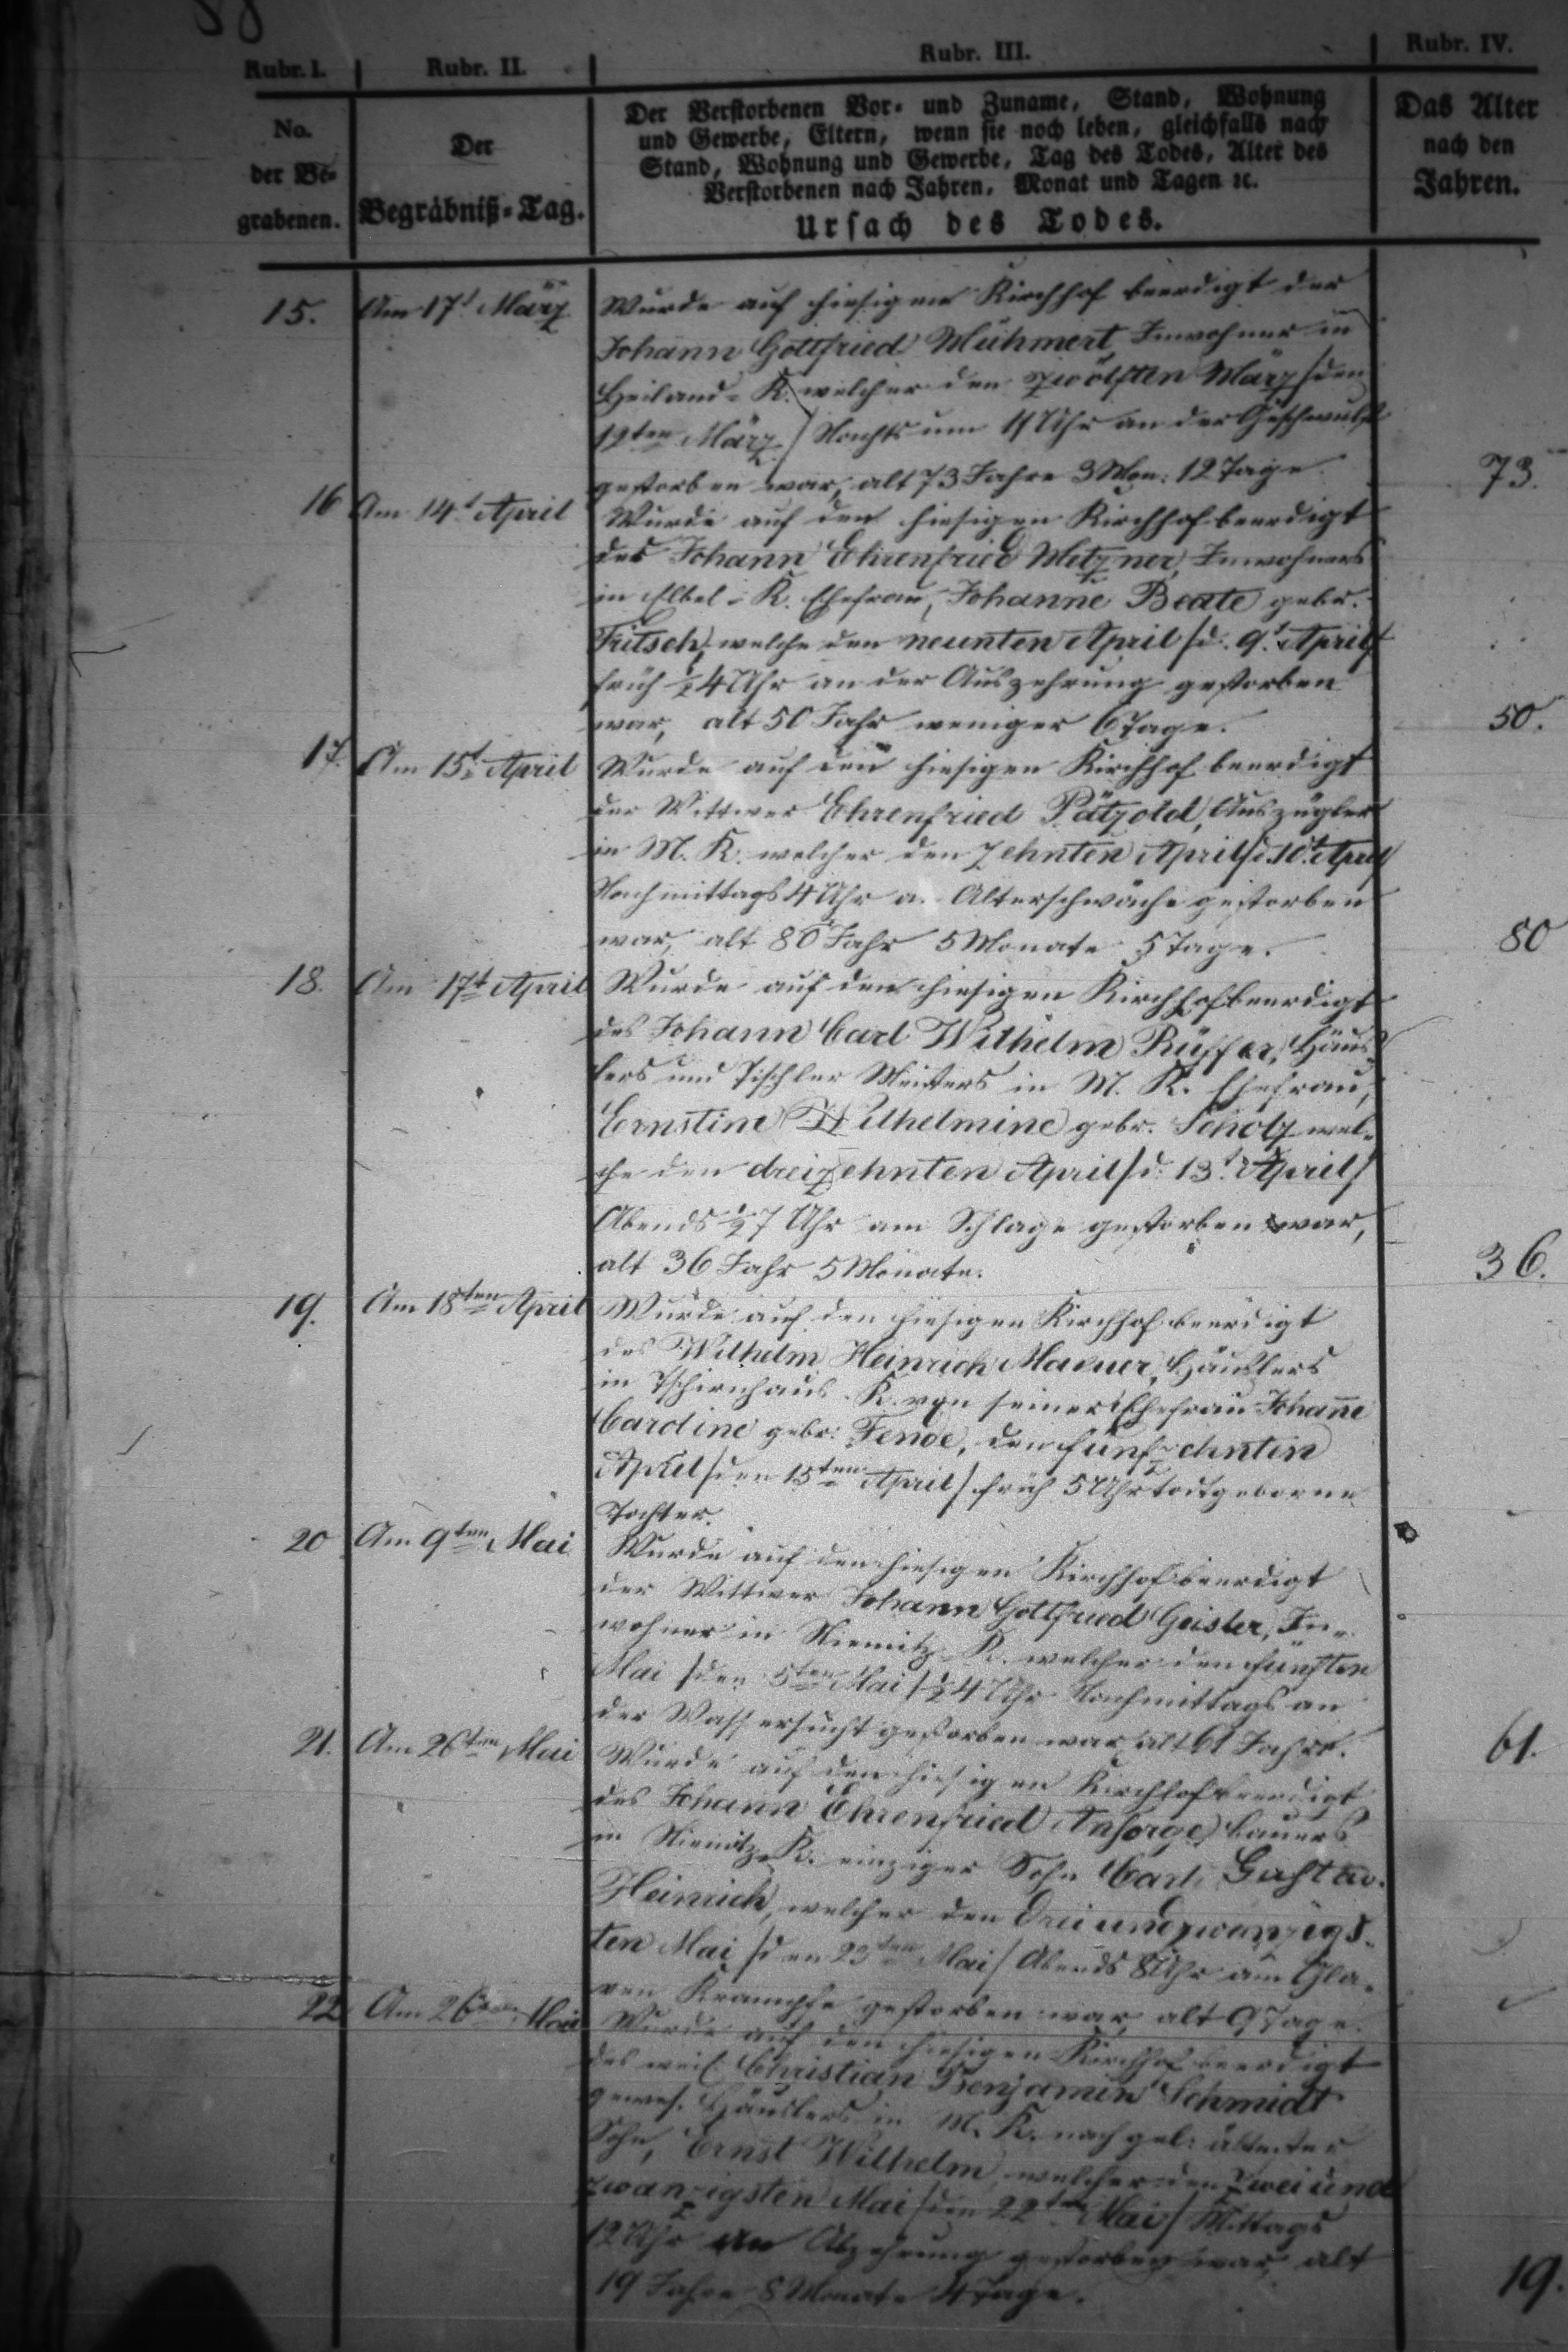 58
Rubr. I. Rubr. II. Rubr. III. Rubr. IV.
No.
der Be-
grabenen.
Der
Begräbniß-Tag.
Der Verstorbenen Vor- und Zuname, Stand, Wohnung
und Gewerbe, Eltern, wenn sie noch leben, gleichfalls nach
Stand, Wohnung und Gewerbe, Tag des Todes, Alter des
Verstorbenen nach Jahren, Monat und Tagen ꝛc.
Ursach des Todes.
Das Alter
nach den
Jahren.
15. Am 17t März Wurde auf hiesigem Kirchhof beerdigt der
Johann Gottfried Mühmert, Inwohner in
Heiland-K. welcher den zwölften März /den
12ten März/ Nachts um 11 Uhr an der Geschwulst
gestorben war, alt 73 Jahre 3 Mon: 12 Tage. 73.
16 Am 14t April Wurde auf den hiesigen Kirchhof beerdigt
des Johann Ehrenfried Metzner, Inwohners
in Elbel-K. Ehefrau, Johanne Beate gebr.
Fritsch, welche den neunten April /d. 9t April/
früh ½ 4 Uhr an der Auszehrung gestorben
war, alt 50 Jahr weniger 6 Tage. 50.
17. Am 15t April Wurde auf den hiesigen Kirchhof beerdigt
der Wittwer Ehrenfried Pätzold, Auszügler
in M. K. welcher den zehnten April /d. 10t April/
Nachmittags 4 Uhr a. Alterschwäche gestorben
war, alt 80 Jahr 5 Monate 5 Tage. 80
18. Am 17t April Wurde auf den hiesigen Kirchhof beerdigt
des Johann Carl Wilhelm Rüffer, Häus-
lers und Tischler Meisters in M. K. Ehefrau,
Ernstine Wilhelmine gebr. Scholz wel-
che den dreizehnten April /d. 13t April/
Abends ½ 7 Uhr am Schlage gestorben war,
alt 36 Jahr 5 Monate. 36.
19. Am 18ten April Wurde auf den hiesigen Kirchhof beerdigt
des Wilhelm Heinrich Häuslers
in Tschirnhaus-K. von seiner Ehefrau Johanne
Caroline gebr. den fünfzehnten
April /den 15ten April/ früh 5 Uhr todtgeborne
Tochter.
20 Am 9ten Mai Wurde auf den hiesigen Kirchhof beerdigt
der Wittwer Johann Gottfried Geisler, In-
wohner in Niemitz-K. welcher den fünften
Mai /den 5ten Mai/ ½ 4 Uhr Nachmittags an
der Wassersucht gestorben war, alt 61 Jahr. 61.
21. Am 26ten Mai Wurde auf den hiesigen Kirchhof beerdigt
des Johann Ehrenfried Ansorge, Bauers
in Niemitz-K. einziger Sohn Carl Gustav
Heinrich, welcher den dreiundzwanzigs-
ten Mai /den 23ten Mai/ Abends 8 Uhr am
Krampfe gestorben war, alt 9 Tage.
22 Am 26ten Mai Wurde auf den hiesigen Kirchhof beerdigt
des weil. Christian Benjamin Schmidt
gewes. Häuslers in M. K. nachgel. ältester
Sohn, Ernst Wilhelm, welcher den zweiund
zwanzigsten Mai /den 22ten Mai/ Mittags
12 Uhr an Abzehrung gestorben war, alt
19 Jahre 8 Monate 4 Tage. 19.